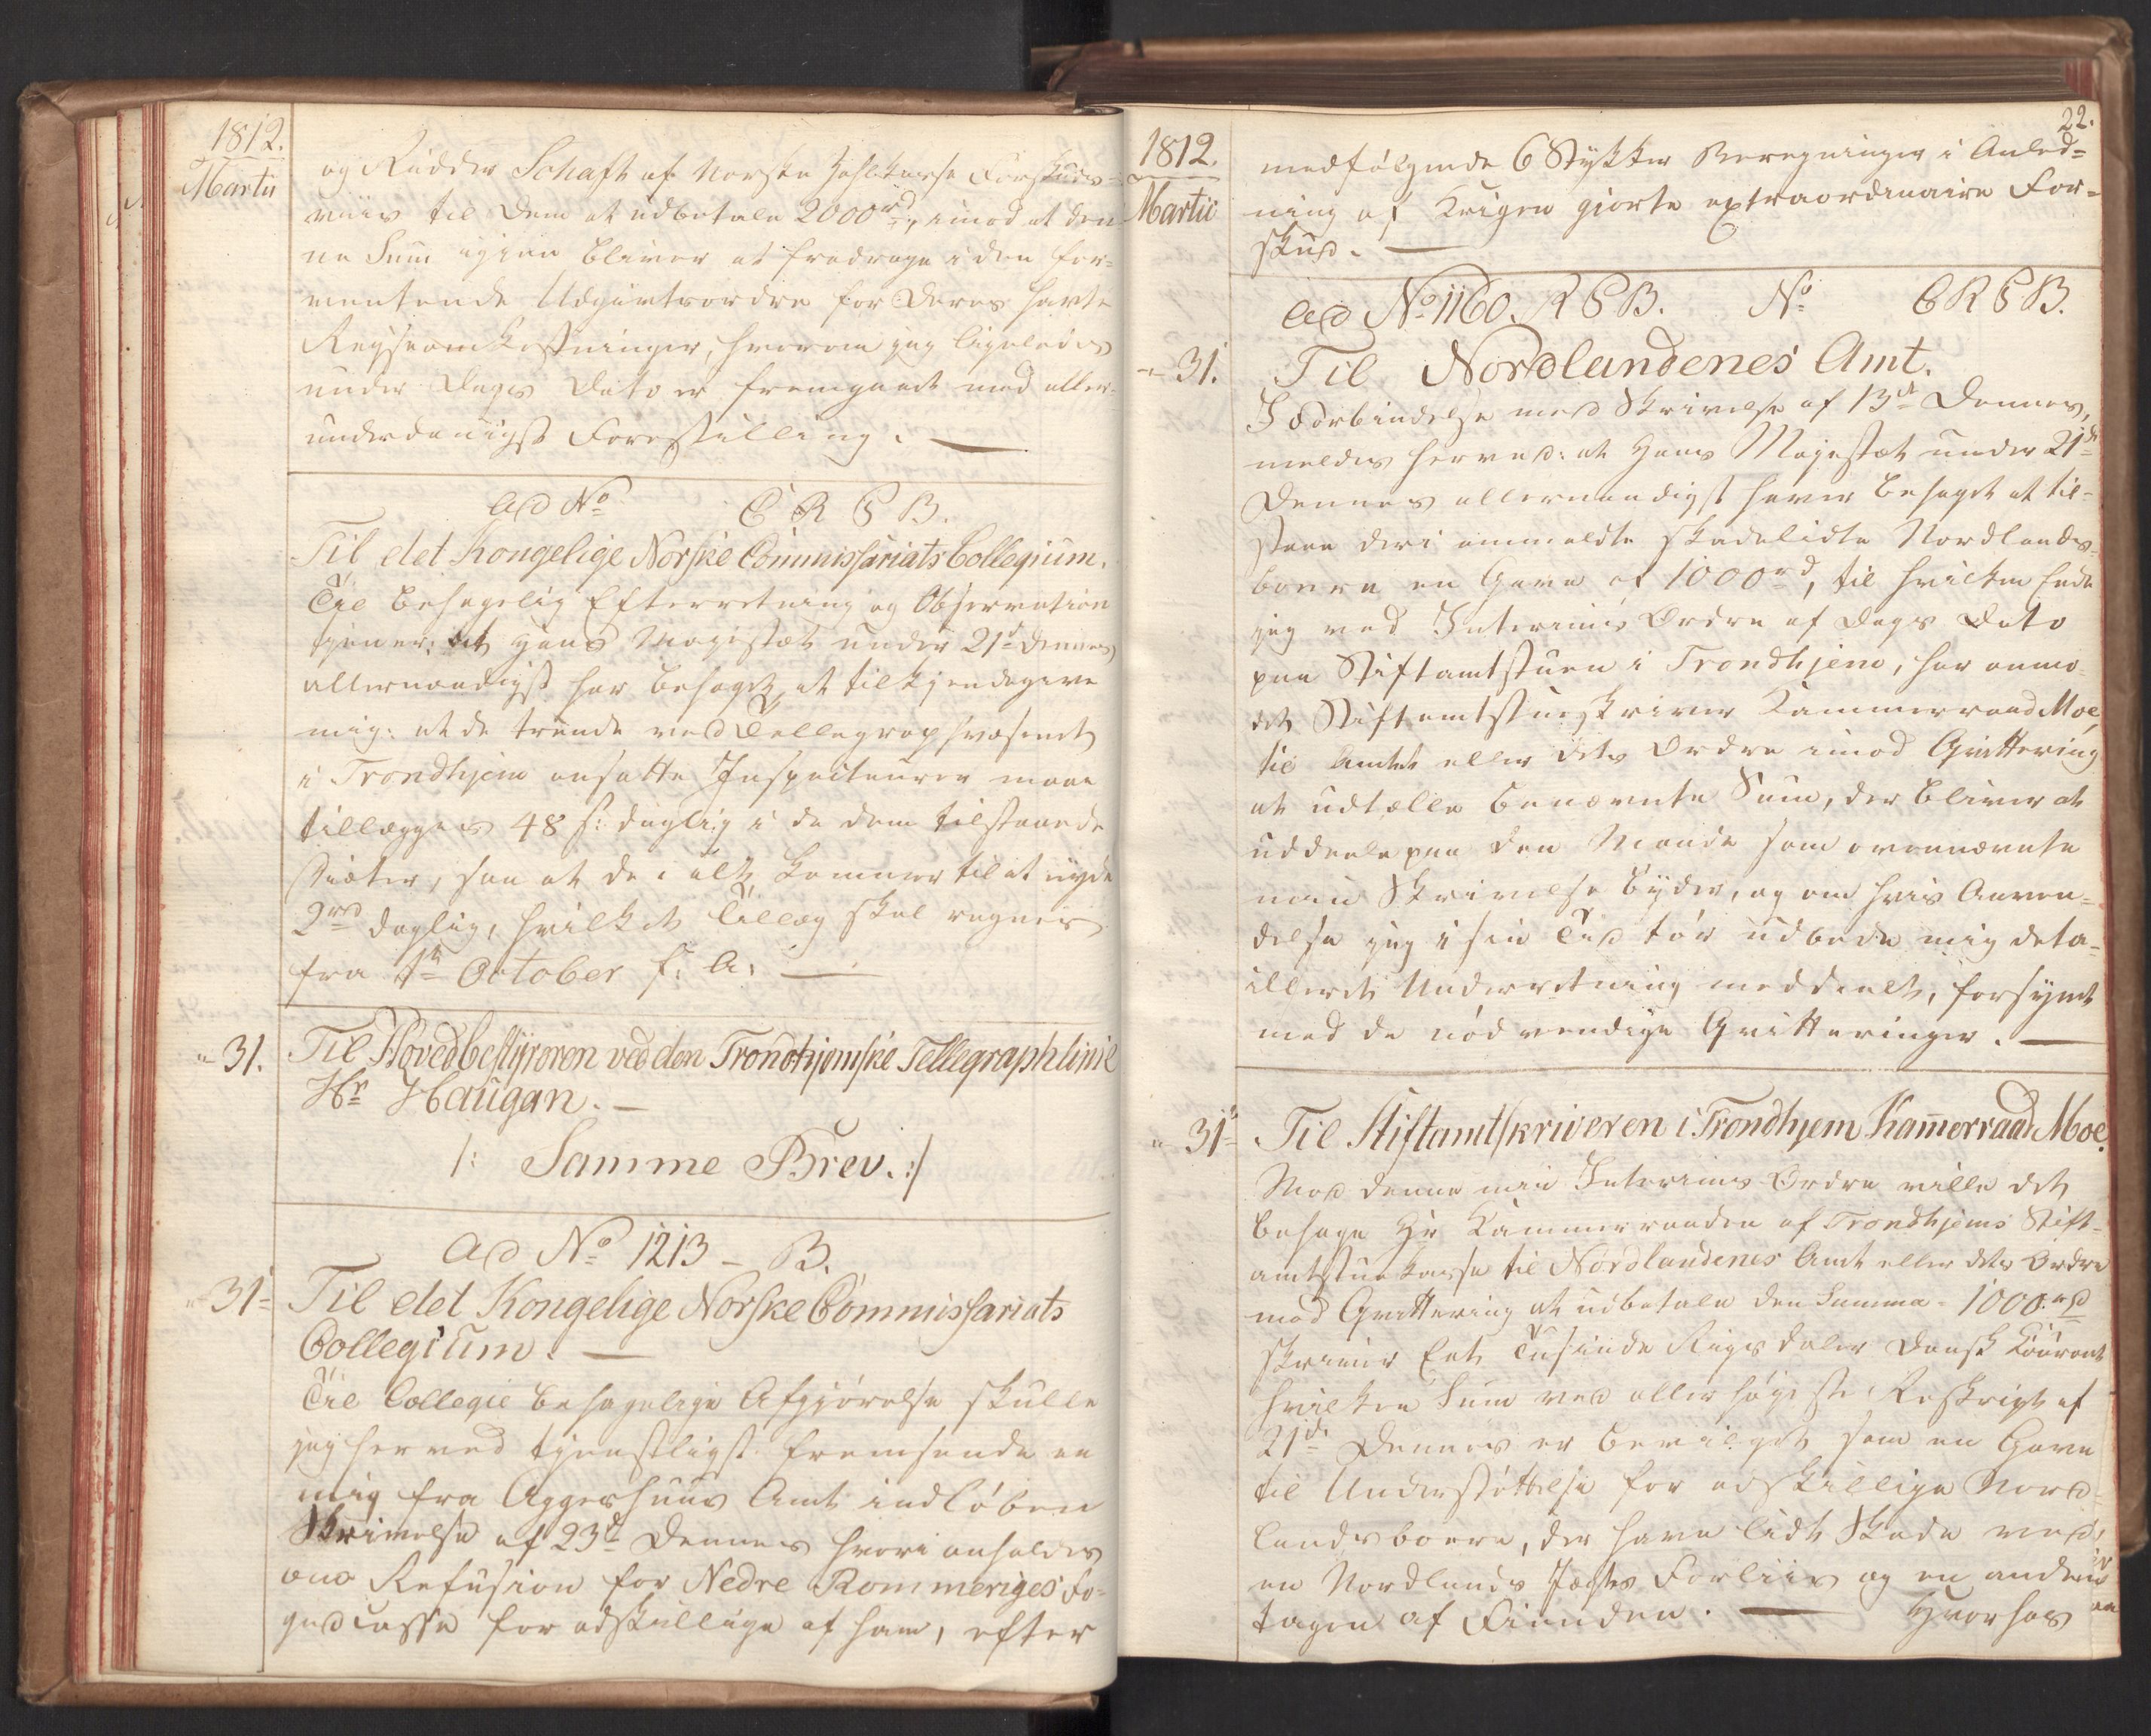 1812.
Martii
og Ridder Schaft af Norske Zahlkasse Forskuds-
viis til Dem at udbetale 2000rd, imod at den
ne Sum igien bliver at fradrage i den for-
ventende Udgivtsordre for Deres havte
Reyseomkostninger, hvorom jeg ligeledes
under Dags Dato er fremgaaet med aller-
underdanigst Forestilling. —
ad No C R G B.
Til det Kongelige Norske Commissariats Collegium.
Til behagelig Efterretning og Observation
tjener: at Hans Majestæt under 21de dennes
allernaadigst har behaget, at tilkjendegive
mig: at de trende ved Tellegraphvæsenet
i Trondhjem ansatte Inspecteurer maae
tillægges 48 s: daglig i de dem tilstaaede
Diæter, saa at de i alt kommer til at nyde
2rd daglig, hvilket Tillæg skal regnes
fra 1te October f: A: —
" 31. Til Hovedbestyreren ved den Trondhjemske Tellegraphlinie
Hr Haugan. —
/: Samme Brev. :/
Ad No 1213 - B.
" 31 Til det Kongelige Norske Commissariats
Collegium. —
Til Collegie behagelige Afgjørelse skulle
jeg herved tjenstligst fremsende en
mig fra Aggershuus Amt indløben
Skrivelse af 23d Dennes hvori anholdes
om Refusion for Nedre Rommeriges Fo-
gedcasse for adskillige af ham, efter
22.
1812.
Martii
medfølgende 6 Stykker Beregninger i Anled-
ning af Krigen giorte extraordinaire For-
skud. —
ad No 1160. R G B. No C R G B.
" 31. Til Nordlandenes Amt.
I Forbindelse med Skrivelse af 13de Dennes,
meldes herved: at Hans Majestæt under 21de
Dennes allernaadigst haver behaget at til-
staae deri ommeldte skadelidte Nordlands-
boere en Gave af 1000rd, til hvilken Ende
jeg ved Interims Ordre af Dags Dato
paa Stiftamtstuen i Trondhjem, har anmo-
det Stiftamtstueskriver Kammerraad Moe,
til Amtet eller dets Ordre imod Qvittering
at udtælle benævnte Sum, der bliver at
uddeele paa den Maade som ovennævnte
min Skrivelse byder, og om hvis Anven-
delse jeg i sin Tid tør udbede mig deta-
illeret Underretning meddeelt, forsynet
med de nødvendige Qvitteringer. —
" 31 Til Stiftamtskriveren i Trondhjem Kammerraad Moe.
Mod denne min Interims Ordre ville det
behage Hr Kammerraaden af Trondhjems Stift-
amtstue kasse til Nordlandenes Amt eller dets Ordre
mod Qvittering at udbetale den Summa - 1000rd
skriver Eet Tusinde Rigsdaler Dansk Courant
hvilken Sum ved allerhøyeste Reskript af
21de Dennes er bevilget som en Gave
til Understøttelse for adskillige Nord-
landsboere, der have lidt Skade ved
en Nordlands Jægts Forliis og en anden
tagen af Fienden. — Hvorhos